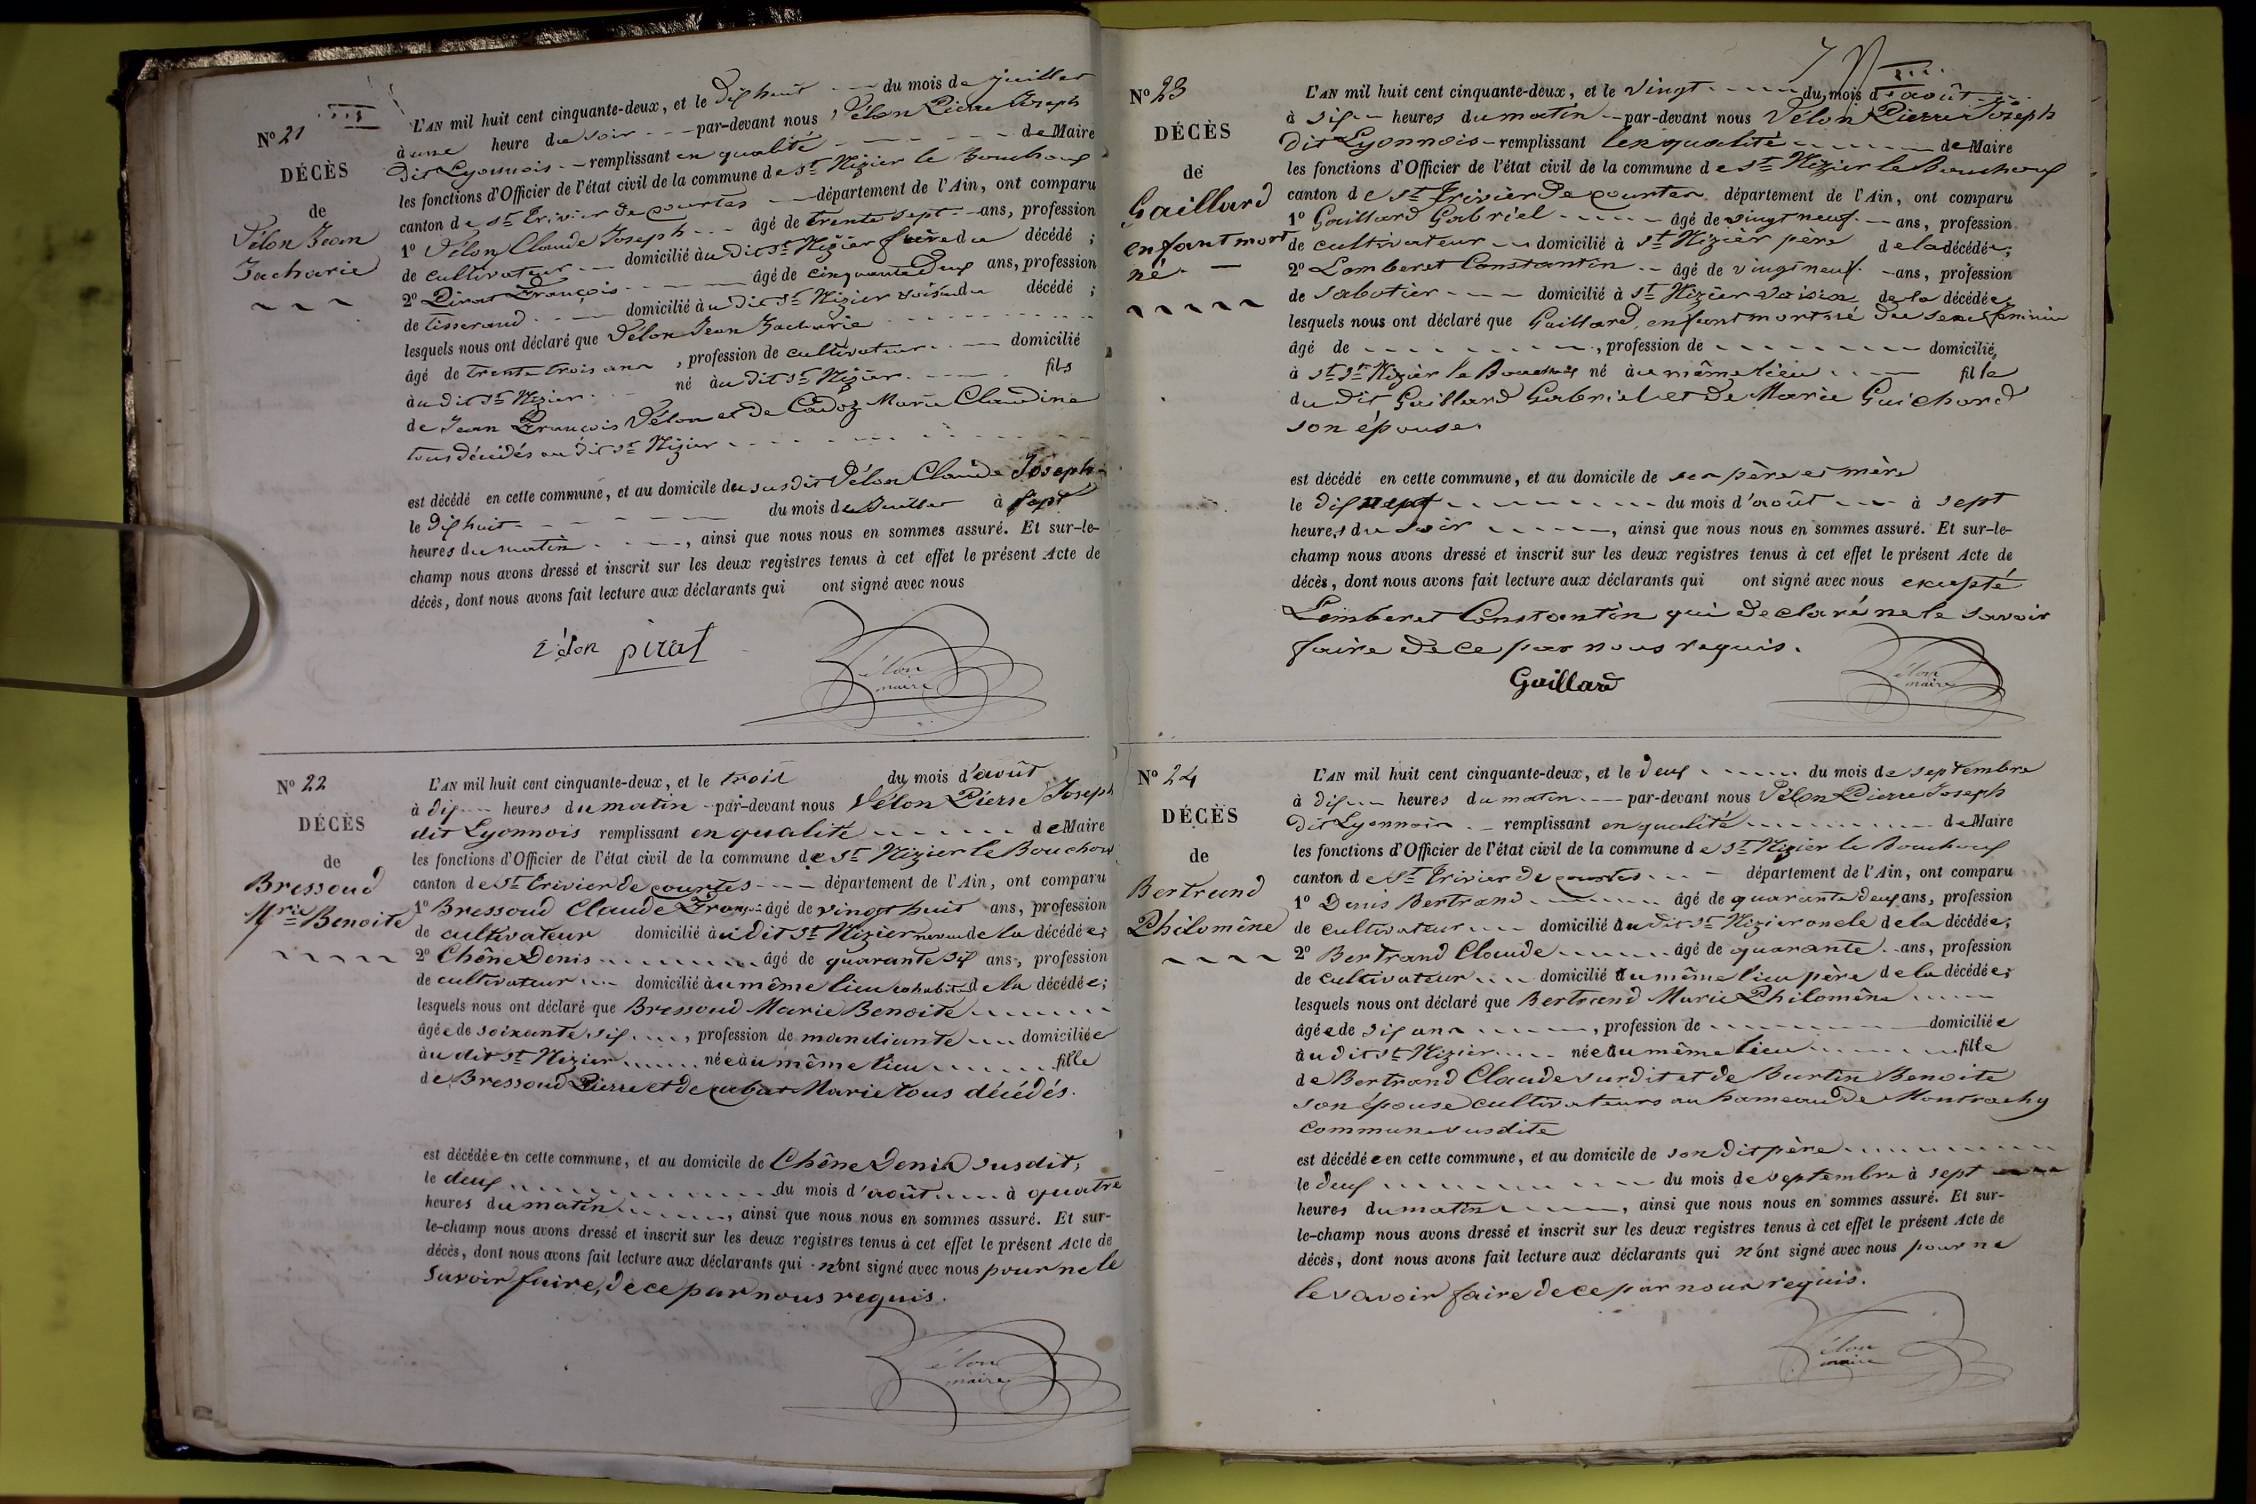 N° 21
DÉCÈS
de
Vélon Jean
Zacharie
L'AN mil huit cent cinquante-deux, et le dix huit du mois de Juillet
à une heure du soir par-devant nous Vélon Pierre Joseph
dit Lyonnois remplissant en qualité de Maire
les fonctions d'Officier de l'état civil de la commune de St Nizier le Bouchoux
canton de St Trivier de courtes département de l'Ain, ont comparu
1° Vélon Claude Joseph âgé de trente sept ans, profession
de cultivateur domicilié au dit St Nizier frère du décédé ;
2° Pirat François âgé de cinquante deux ans, profession
de tisserand domicilié au dit St Nizier voisin du décédé ;
lesquels nous ont déclaré que Vélon Jean Zacharie
âgé de trente trois ans , profession de cultivateur domicilié
au dit St Nizier né au dit St Nizier fils
de Jean François Vélon et de Cadoz Marie Claudine
tous décédés au dit St Nizier
est décédé en cette commune, et au domicile du susdit Vélon Claude Joseph
le dix huit du mois de Juillet à sept
heures du matin , ainsi que nous nous en sommes assuré. Et sur-le-
champ nous avons dressé et inscrit sur les deux registres tenus à cet effet le présent Acte de
décès, dont nous avons fait lecture aux déclarants qui ont signé avec nous
Vélon pirat
Vélon
maire
N° 22
DÉCÈS
de
Bressoud
Mrie Benoite
L'AN mil huit cent cinquante-deux, et le trois du mois d'août
à dix heures du matin par-devant nous Vélon Pierre Joseph
dit Lyonnois remplissant en qualité de Maire
les fonctions d'Officier de l'état civil de la commune de St Nizier le Bouchoux
canton de St Trivier de courtes département de l'Ain, ont comparu
1° Bressoud Claude François âgé de vingt huit ans, profession
de cultivateur domicilié au dit St Nizier neveu de la décédée ;
2° Chêne Denis âgé de quarante six ans, profession
de cultivateur domicilié au même lieu cohabit. de la décédée ;
lesquels nous ont déclaré que Bressoud Marie Benoite
âgée de soixante six , profession de mandiante domiciliée
au dit St Nizier née au même lieu fille
de Bressoud Pierre et de cubat Marie tous décédés.
est décédée en cette commune, et au domicile de Chêne Denis susdit,
le deux du mois d'août à quatre
heures du matin , ainsi que nous nous en sommes assuré. Et sur-
le-champ nous avons dressé et inscrit sur les deux registres tenus à cet effet le présent Acte de
décès, dont nous avons fait lecture aux déclarants qui n'ont signé avec nous pour ne le
savoir faire, de ce par nous requis.
Vélon
maire
N° 23
DÉCÈS
de
Gaillard
enfant mort
né
L'AN mil huit cent cinquante-deux, et le vingt du mois d'août
à six heures du matin par-devant nous Vélon Pierre Joseph
dit Lyonnois remplissant en qualité de Maire
les fonctions d'Officier de l'état civil de la commune de St Nizier le Bouchoux
canton de St Trivier de courtes département de l'Ain, ont comparu
1° Gaillard Gabriel âgé de vingt neuf ans, profession
de cultivateur domicilié à St Nizier père de la décédée ;
2° Lomberet Constantin âgé de vingt neuf ans, profession
de sabotier domicilié à St Nizier voisin de la décédée ;
lesquels nous ont déclaré que Gaillard, enfant mort né du sexe féminin
âgé de , profession de domicilié
à St St Nizier le Bouchoux né au même lieu fille
du dit Gaillard Gabriel et de Marie Guichard
son épouse.
est décédé en cette commune, et au domicile de ses père et mère
le dix neuf du mois d'août à sept
heures du soir , ainsi que nous nous en sommes assuré. Et sur-le-
champ nous avons dressé et inscrit sur les deux registres tenus à cet effet le présent Acte de
décès, dont nous avons fait lecture aux déclarants qui ont signé avec nous excepté
Lomberet Constantin qui déclaré ne le savoir
faire de ce par nous requis.
Gaillard
Vélon
maire
N° 24
DÉCÈS
de
Bertrand
Philomène
L'AN mil huit cent cinquante-deux, et le deux du mois de septembre
à dix heures du matin par-devant nous Vélon Pierre Joseph
dit Lyonnois remplissant en qualité de Maire
les fonctions d'Officier de l'état civil de la commune de St Nizier le Bouchoux
canton de St Trivier de courtes département de l'Ain, ont comparu
1° Denis Bertrand âgé de quarante deux ans, profession
de cultivateur domicilié au dit St Nizier oncle de la décédée ;
2° Bertrand Claude âgé de quarante ans, profession
de cultivateur domicilié au même lieu père de la décédée ;
lesquels nous ont déclaré que Bertrand Marie Philomène
âgée de six ans , profession de domiciliée
au dit St Nizier née au même lieu fille
de Bertrand Claude susdit et de Burtin Benoite
son épouse cultivateurs au hameau de Montrachy
commune susdite
est décédée en cette commune, et au domicile de son dit père
le deux du mois de septembre à sept
heures du matin , ainsi que nous nous en sommes assuré. Et sur-
le-champ nous avons dressé et inscrit sur les deux registres tenus à cet effet le présent Acte de
décès, dont nous avons fait lecture aux déclarants qui n'ont signé avec nous pour ne
le savoir faire de ce par nous requis.
Vélon
maire